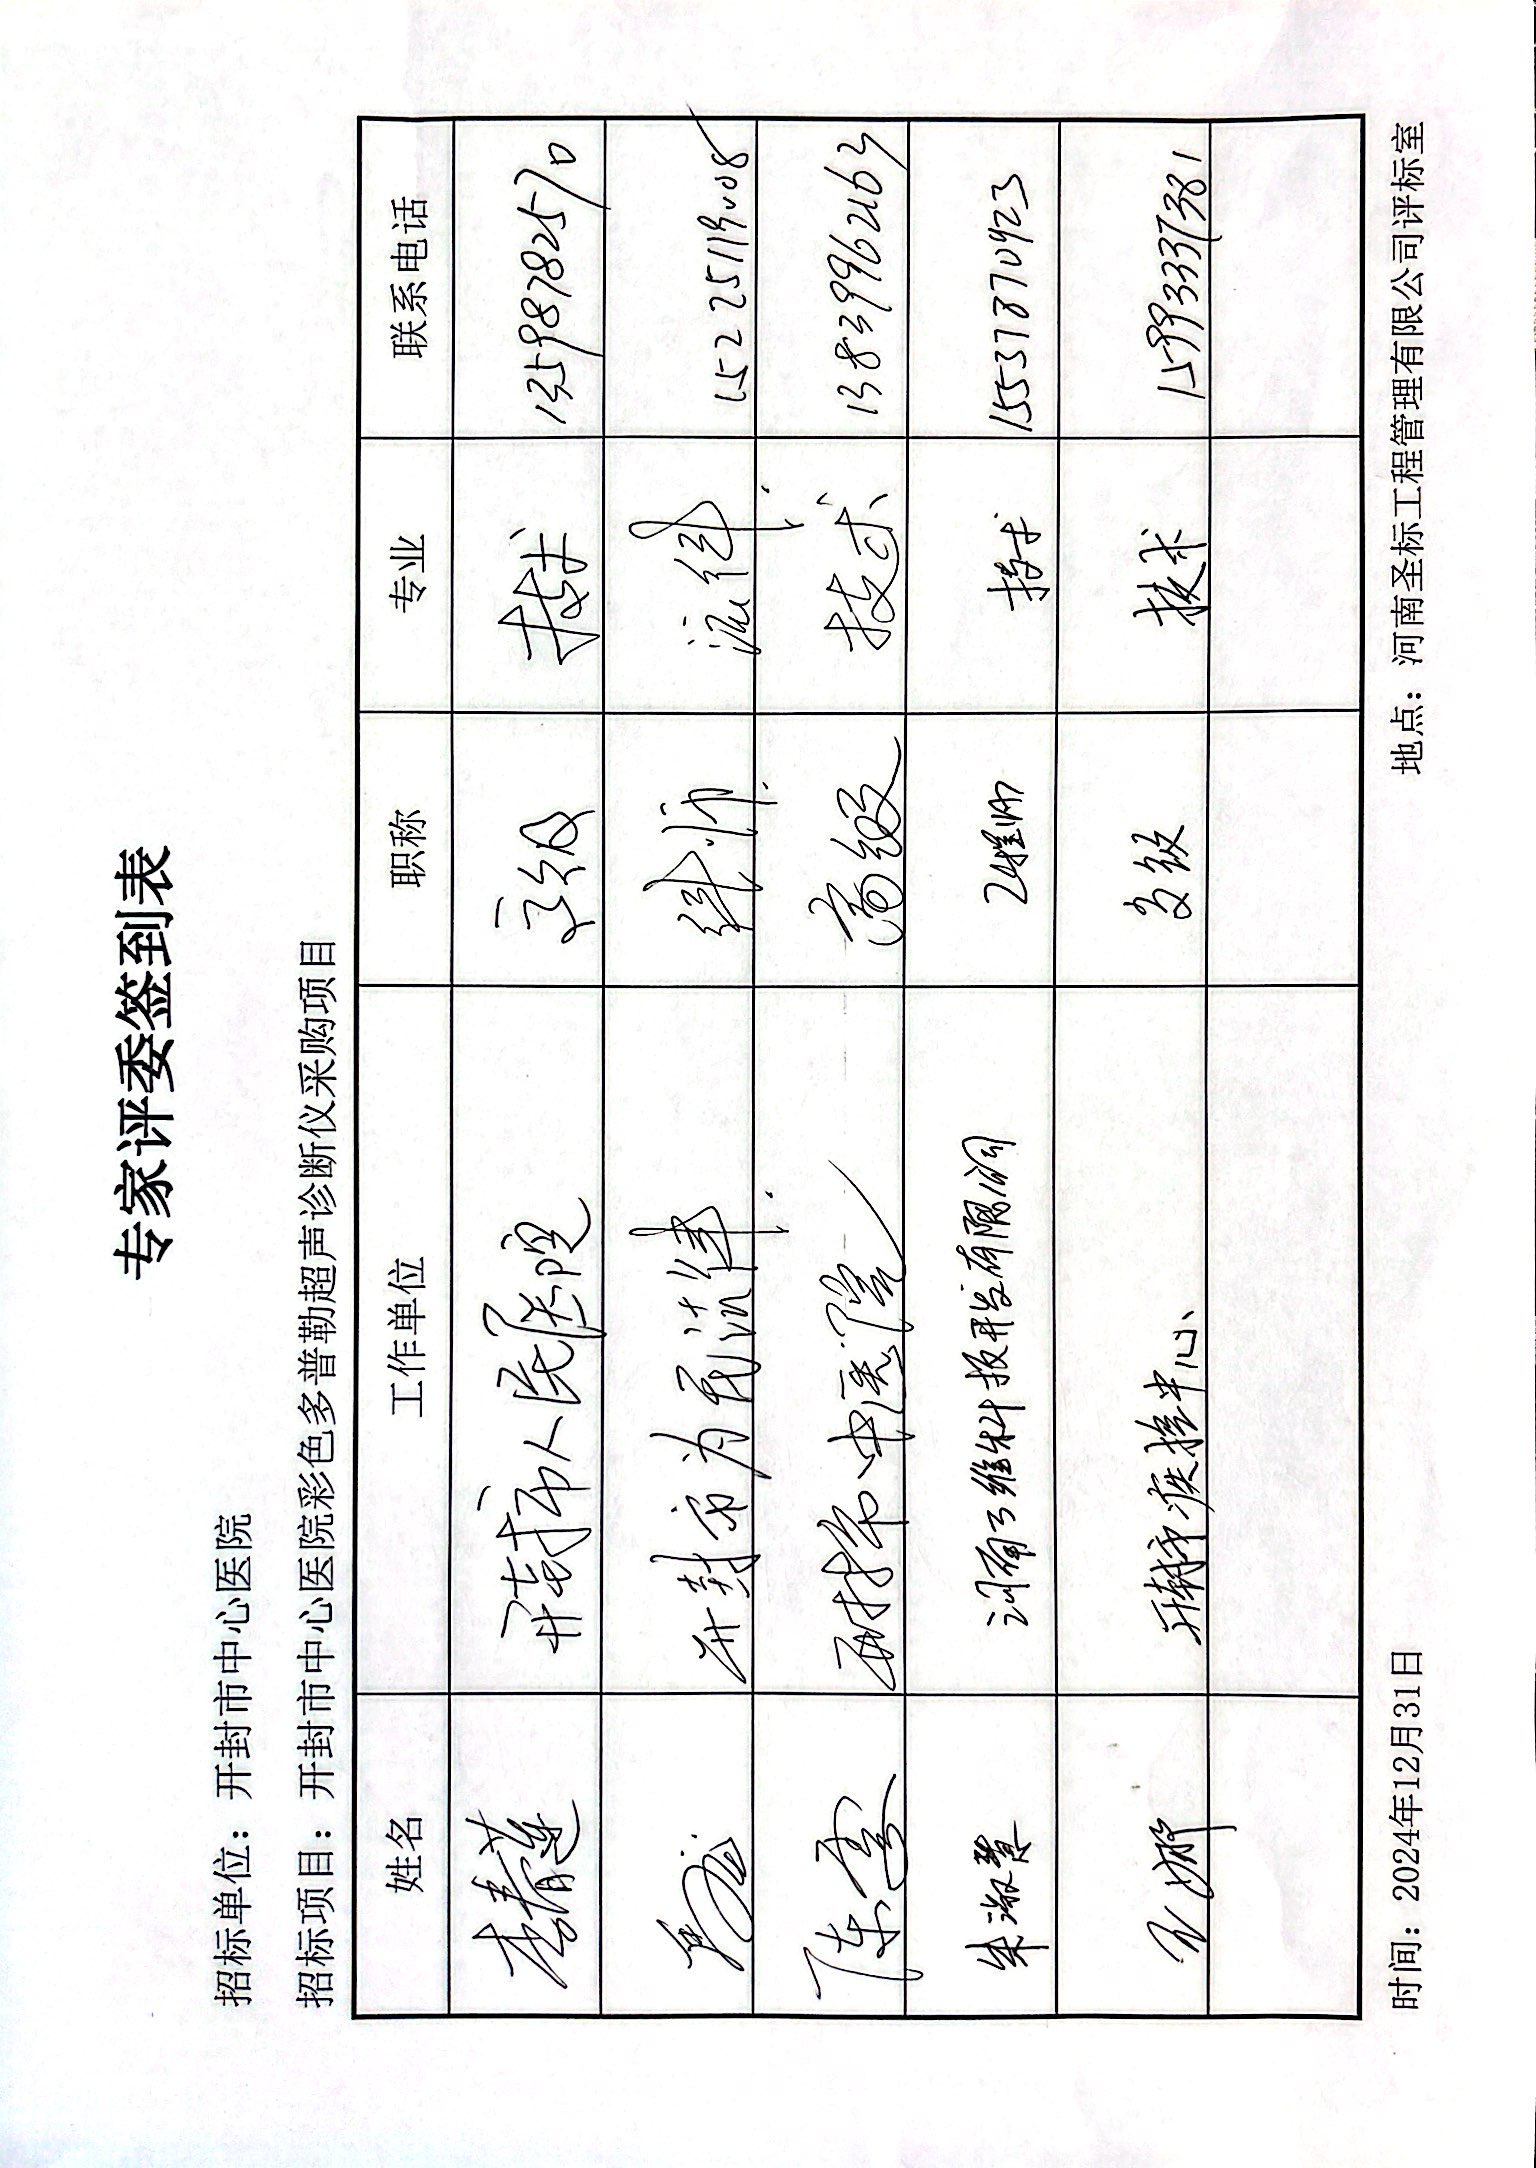 专家评委签到表
招标单位：开封市中心医院
招标项目：开封市中心医院彩色多普勒超声诊断仪采购项目
姓名 工作单位 职称 专业 联系电话
李春莲 开封市人民医院 技术 13598782570
开封市 律师 法律
陈雪 开封市中医院 高级 技术 13839962163
朱淑贤 河南三维科技开发有限公司 工程师 技术 15537870923
王娜 开封市疾控中心 技术 15993337381
时间：2024年12月31日 地点：河南圣标工程管理有限公司评标室